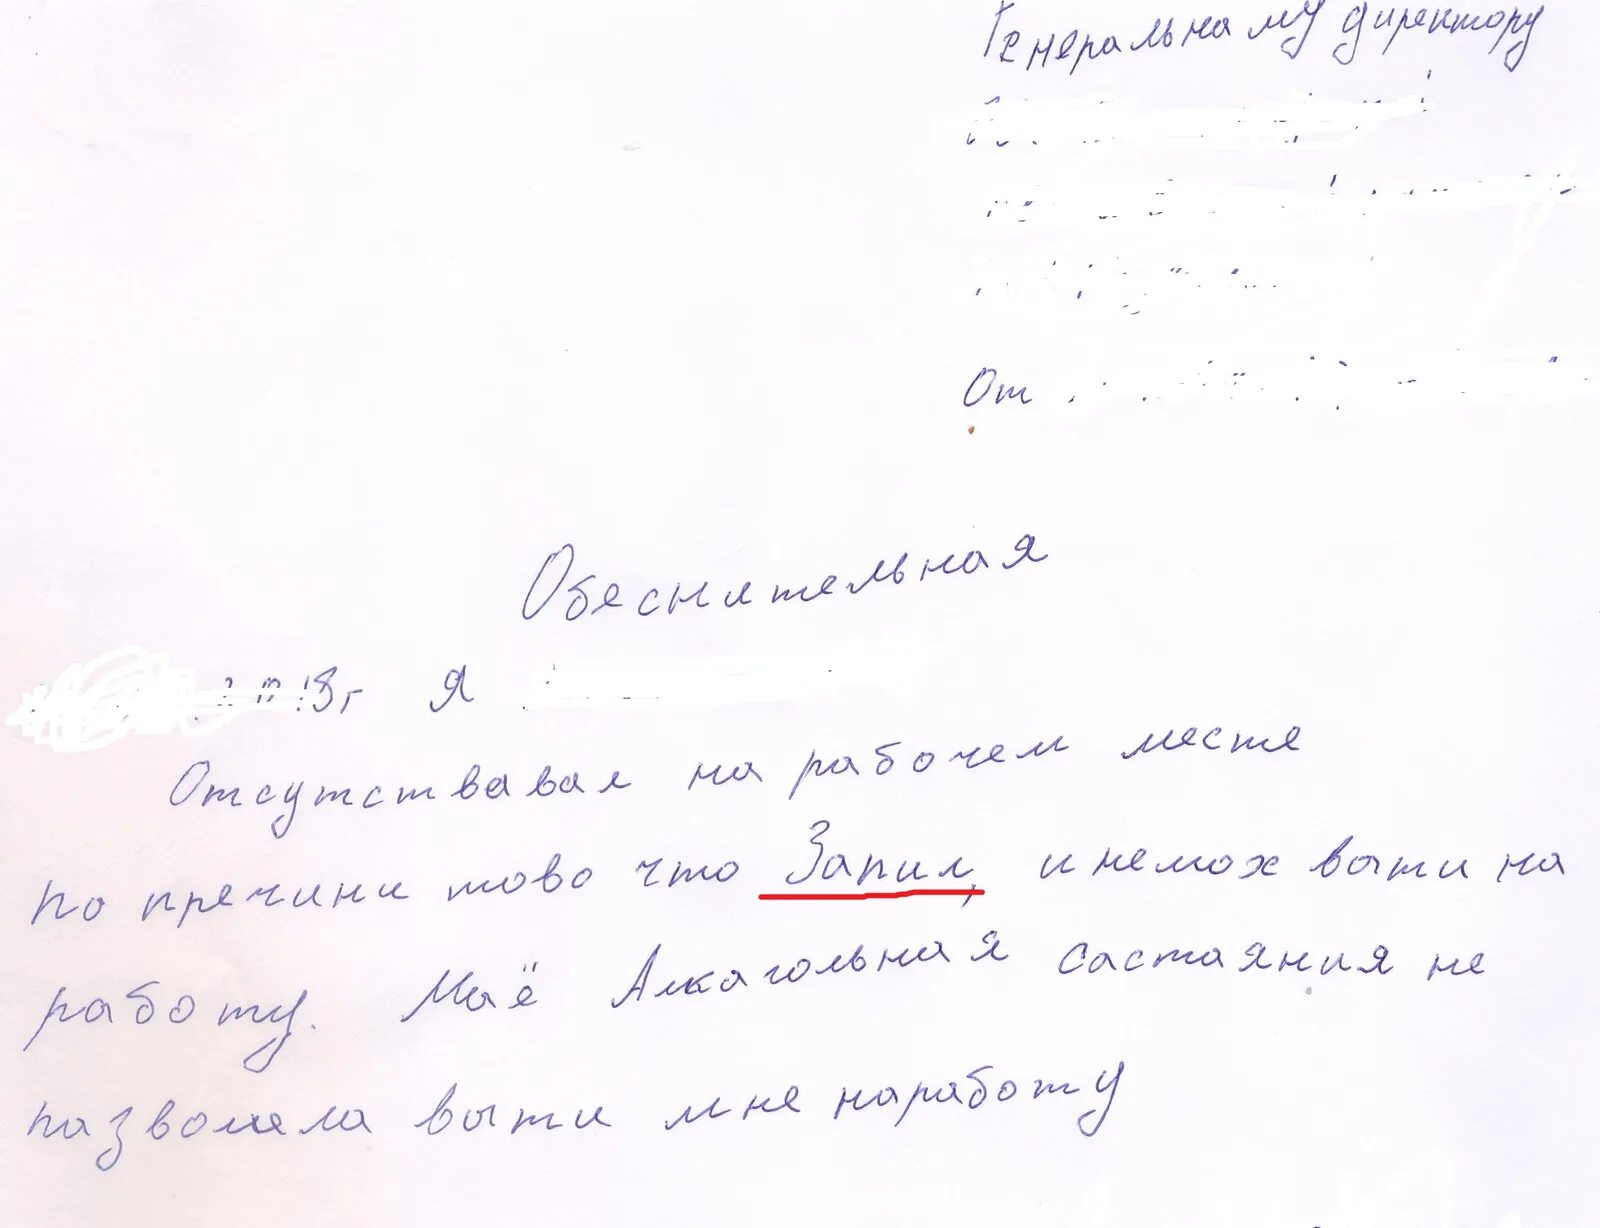 Генеральнаму директору
От
Обеснительная
18г Я
Отсутствавал на рабочем месте
по пречини тово что Запил, и немох выти на
работу. Маё Алкагольная састаяния не
пазволела выти мне наработу